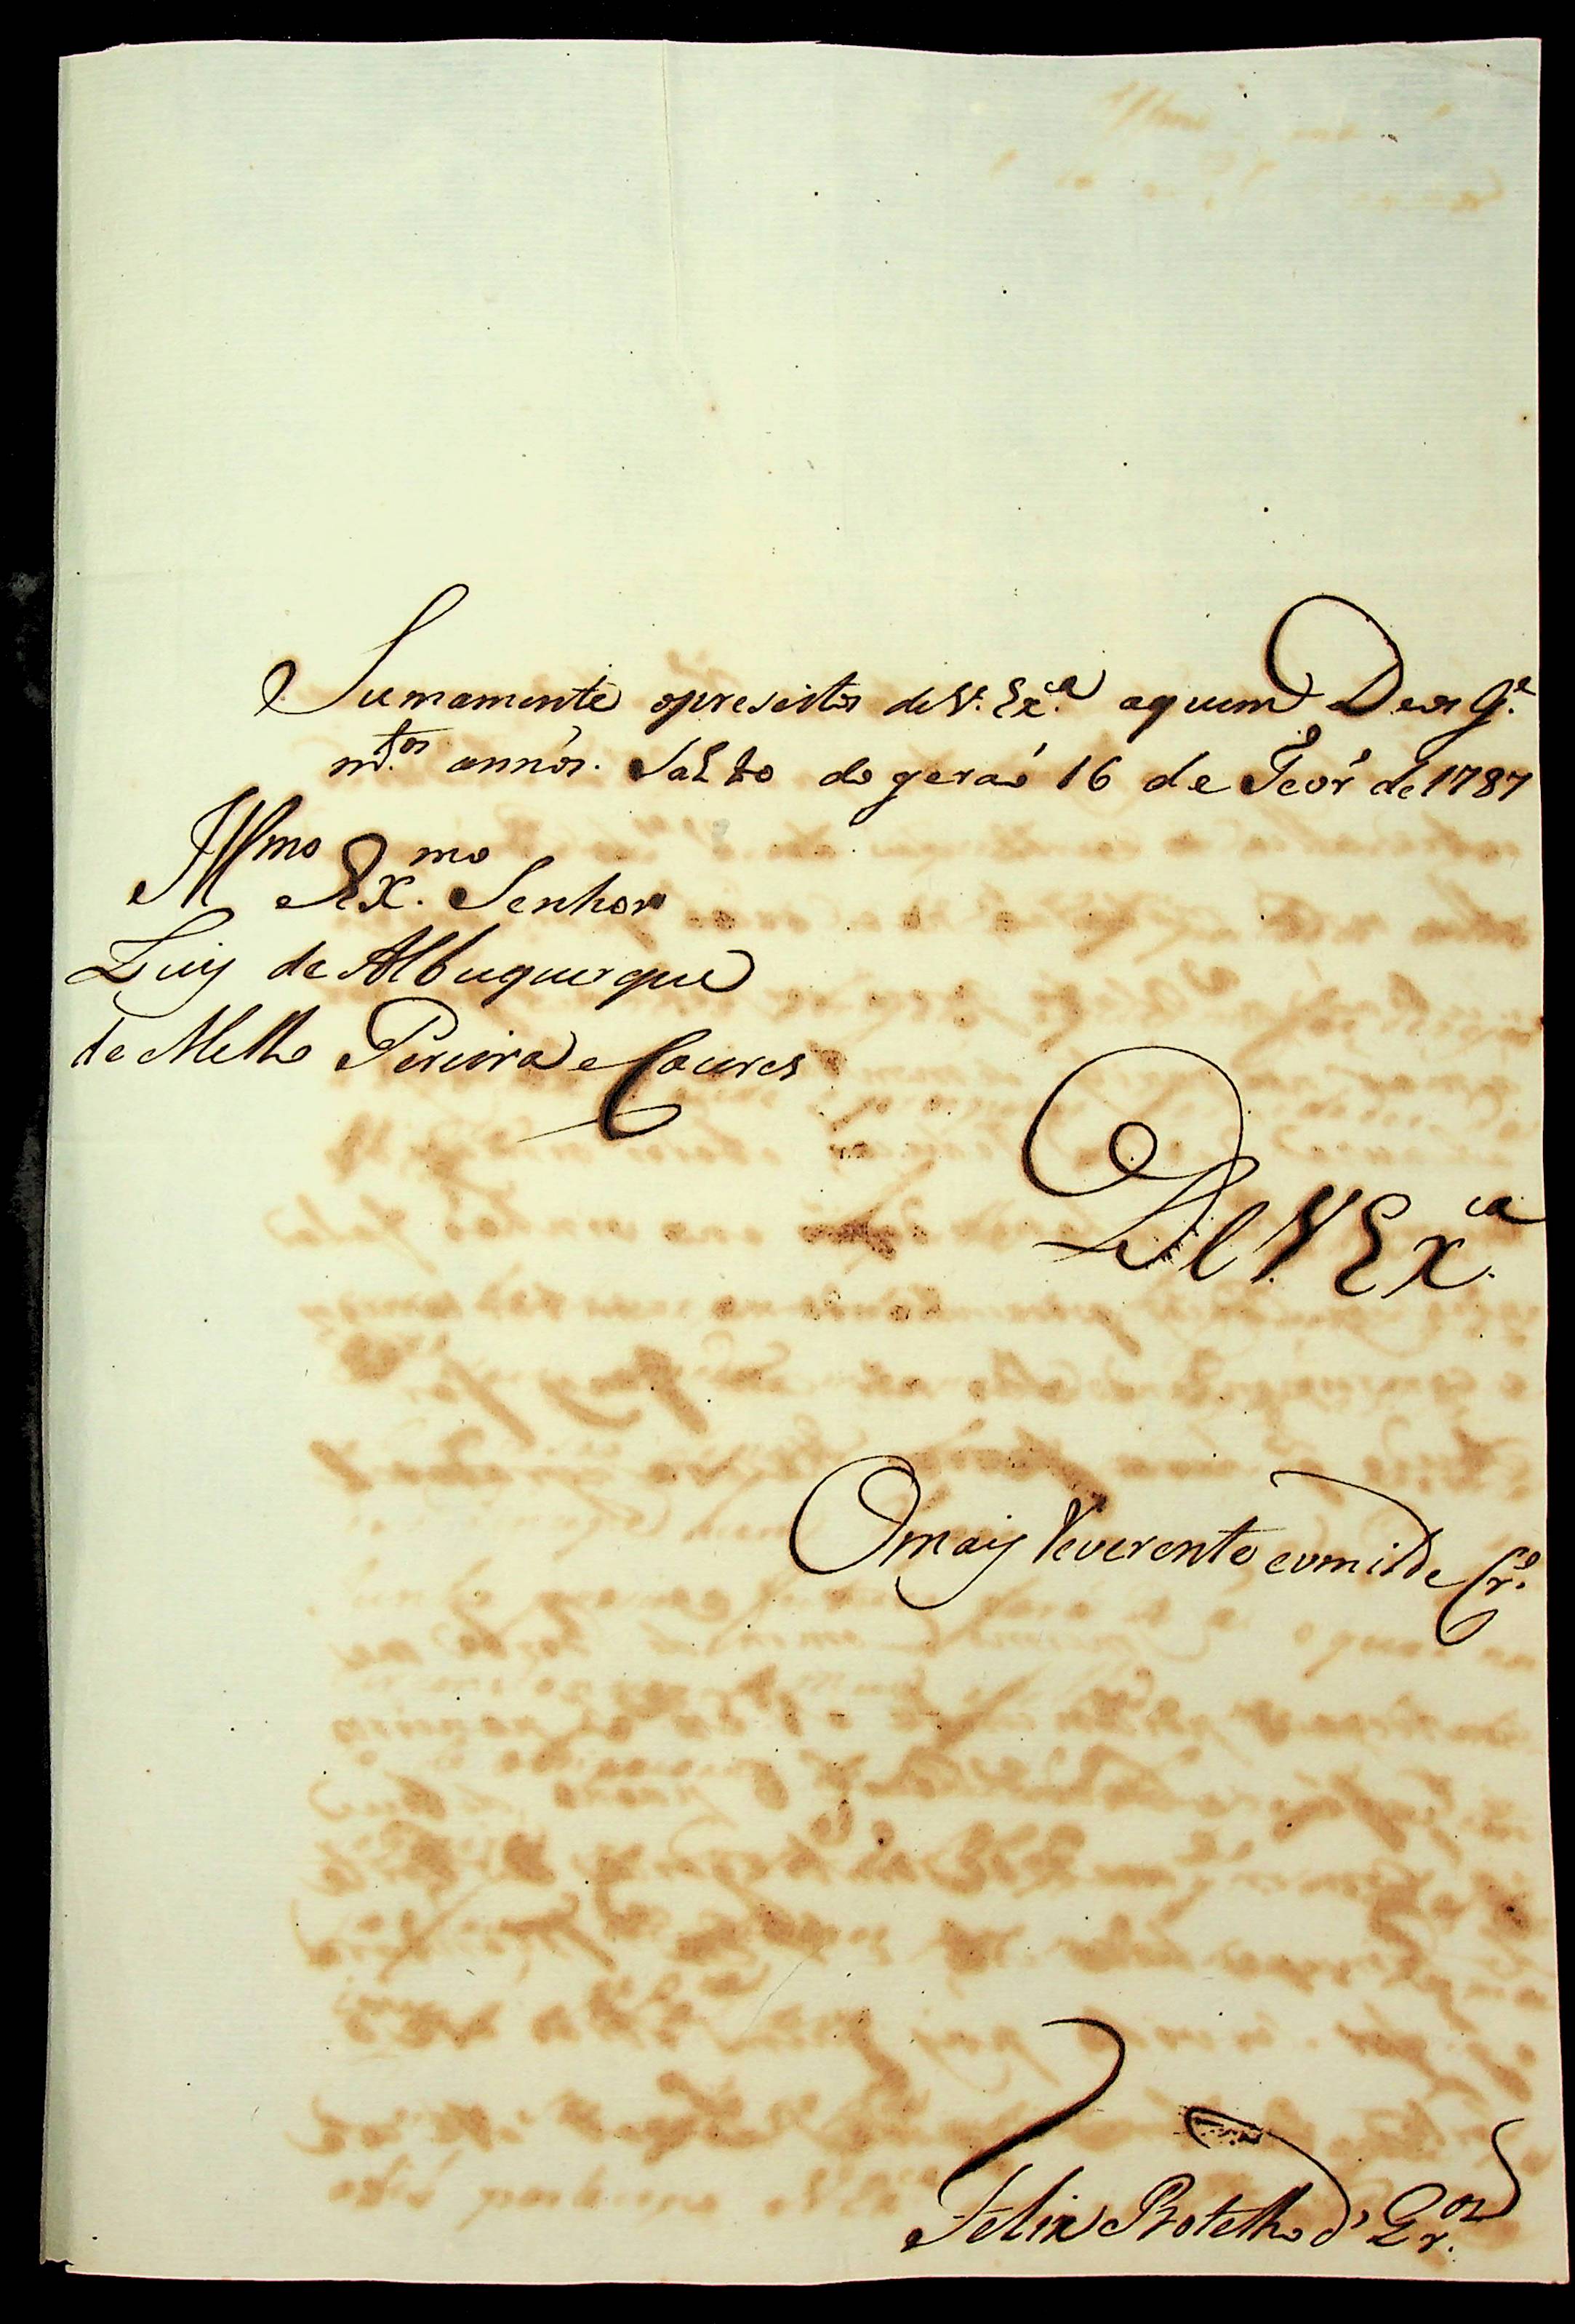 Sumamente opresistos de V. Ex.ª aquem Deos G.e
m.tos annos. Salto do gerao 16 de Feór de 1787
Illmo Ex.mo Senhor
Luiz de Albuquerque
de Mello Pereira e Caceres
De V Ex.ca
O mais Reverente eomilde Cr.o
Felix Botelho d'